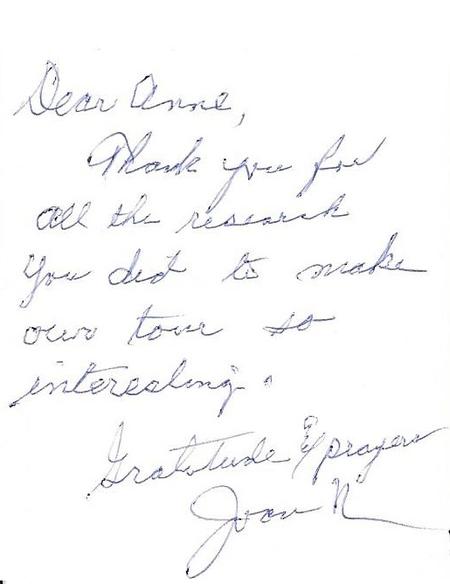 Dear Anne,
Thank you for
all the research
you did to make
our tour so
interesting.
Gratitude & prayers
Joan N